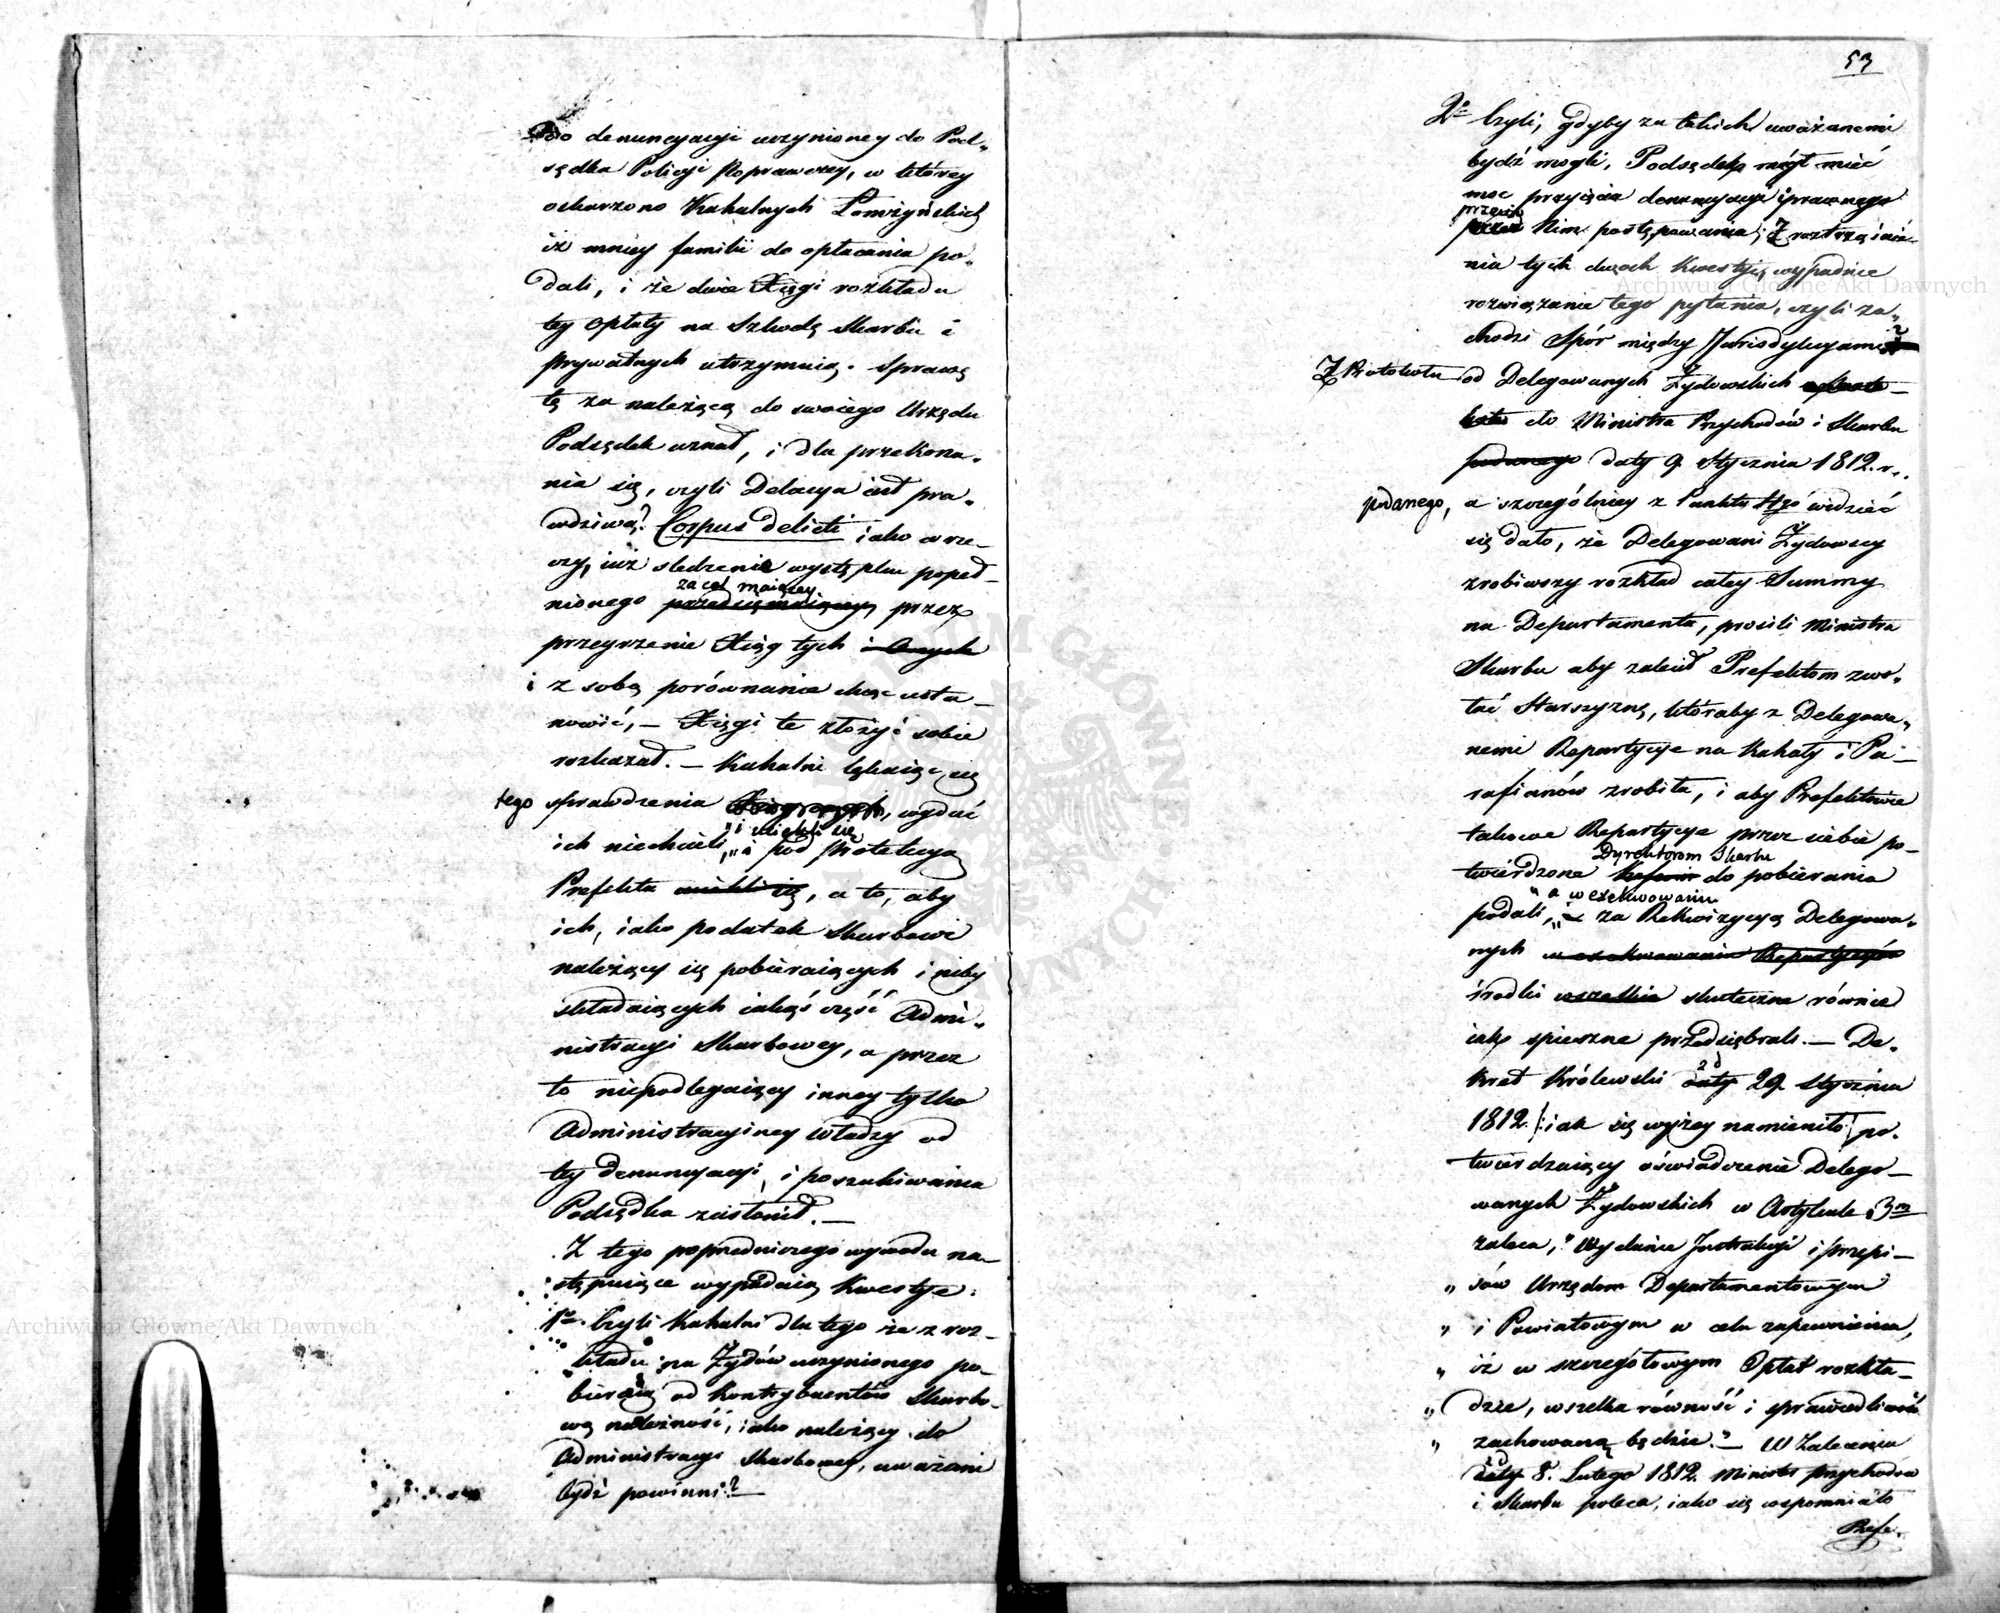 Po denuncyacyi uczynioney do Pod„
sędka Policyi Poprawczey, w którey
oskarzono Kahalnych Łomżyńskich
iż mniey familii do opłacenia po„
dali, i że dwie Xięgi rozkładu
tey opłaty na szkodę Skarbu i
prywatnych utrzymuią. Sprawę
tę za należącą do swoiego Urzędu
Podsędek uznał, i dla przekona„
nia się, czyli Delacya iest pra„
wdziwą? Corpus delicti iako w rze„
czy, iuż sledzenie występku popeł„
za cel maiącey
nionego przedsięmaiącey przez
przeyrzenie Xiąg tych i onych
i z sobą porównanie chcąc usta„
nowić, — Xięgi te złożyć sobie
rozkazał. — Kahalni lękaiąc się
tego sprawdzenia, wydać
„i uciekli się
ich niechcieli, „i pod protekcyą
Prefekta uciekli się, a to, aby
ich, iako podatek Skarbowi
należący się pobieraiących i niby
składaiących iakąś część Admi„
nistracyi Skarbowey, a przez
to niepodlegaiący inney tylko
Administracyiney władzy od
tey denuncyacyi, i poszukiwania
Podsędka zasłonił. —
Z tego poprzedniczego wywodu na„
stępuiące wypadaią kwestye:
1o Czyli Kahalni dla tego że z roz„
kładu na Żydów uczynionego po„
bieraią od kontrybuentów Skarbo„
wą należność, iako należący do
Administracyi Skarbowey, uważani
bydź powinni? —
53
2o Czyli, gdyby za takich uważanemi
bydź mogli, Podsędek mógł mieć
moc przyięcia denuncyacyi i prawnego
przeciw
przed Nim postępowania; Z roztrząśnie„
nia tych dwóch kwestyi, wypadnie
rozwiązanie tego pytania, czyli za„
chodzi Spór między Jurisdykcyami?
Z Protokołu od Delegowanych Żydowskich
do Ministra Przychodów i Skarbu
podanego daty 9. Stycznia 1812. r.
podanego, a szczególniey z Punktu 4go widzieć
się dało, że Delegowani Żydowscy
zrobiwszy rozkład całey Summy
na Departamenta, prosili Ministra
Skarbu aby zalecił Prefektom zwo„
łać Starszyznę, któraby z Delegowa„
nemi Repartycye na Kahały i Pa„
rafianów zrobiła, i aby Prefektowie
takowe Repartycye przez siebie po„
Dyrektorom Skarbu
twierdzone do pobierania
„a w exekwowaniu
podali, „i za Rekwizycyą Delegowa„
nych w exekwowaniu Repartycyów
środki wszelkie skuteczne równie
iak spieszne przedsiębrali. — De„
zd
kret Królewski daty 29. Stycznia
1812. /: iak się wyżey namieniło :/ po„
twierdzaiący oświadczenie Delego„
wanych Żydowskich w Artykule 3m
zaleca, „Wydanie Instrukcyi i przepi„
„ sów Urzędom Departamentowym
„ i Powiatowym w celu zapewnienia,
„ iż w szczegółowym Opłat rozkła„
„ dzie, wszelka równość i sprawiedliwość
„ zachowaną będzie.” — W Zaleceniu
zd
daty 8. Lutego 1812. Minister przychodów
i Skarbu poleca, iako się wspomniało
Prefe.
Archiwum Główne Akt Dawnych
Archiwum Główne Akt Dawnych